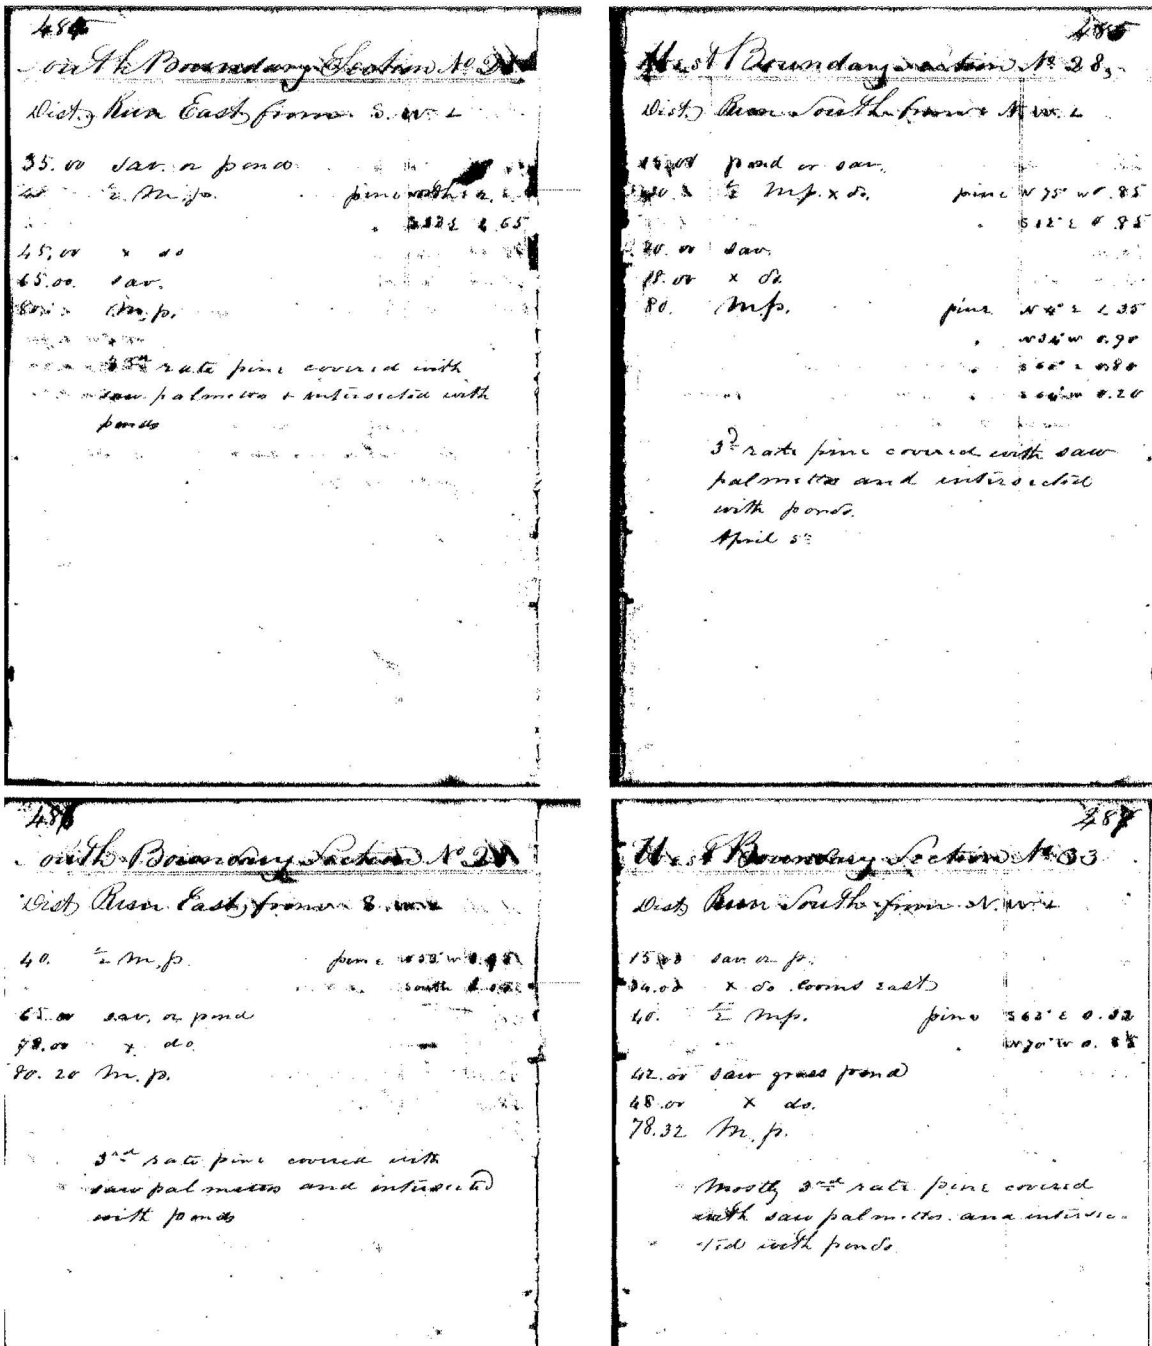 484
outh Boundary Section No 2
Dist. Run East from S. W. L
35.00 sav. or pond
40 ½ M. p. pine
S 33 E 65
45,00 x do
65.00. sav.
80 M. p.
3rd rate pine covered with
saw palmetto + intersected with
ponds
485
West Boundary Section No 28,
Dist. Run South from N. W. L
15.00 pond or sav.
½ M p. x do. pine N 75 W 0.85
" S 12 E 0.85
sav.
78.00 x do.
80. M p. pine N 4 E 35
" W 0.90
" S 60 E 0.80
" W 0.20
3d rate pine covered with saw
palmettos and intersected
with ponds.
April 5th
486
outh Boundary Section No 2
Dist Run East, from S. W. L
40. ½ M. p. pine
south
65.00 sav. or pond
78.00 x do
80.20 M. p.
3rd rate pine covered with
saw palmettos and intersected
with ponds
487
West Boundary Section No 33
Dist Run South from N. W. L
15.00 sav or p.
x do. Looms east
40. ½ M p. pine S 63° E 0.32
" N 70° W 0.
42.00 saw grass pond
48.00 x do.
78.32 M. p.
Mostly 3rd rate pine covered
with saw palmettos. and intersec-
-ted with ponds